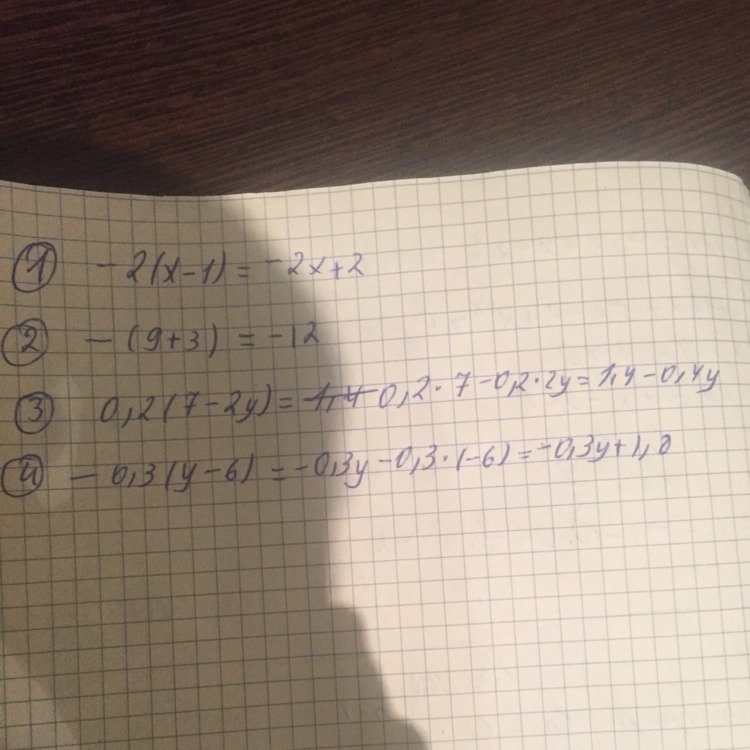 ① -2(x-1)=-2x+2
② -(9+3)=-12
③ 0,2(7-2y)=~~1,4~~ 0,2·7-0,2·2y=1,4-0,4y
④ -0,3(y-6)=-0,3y-0,3·(-6)=-0,3y+1,8